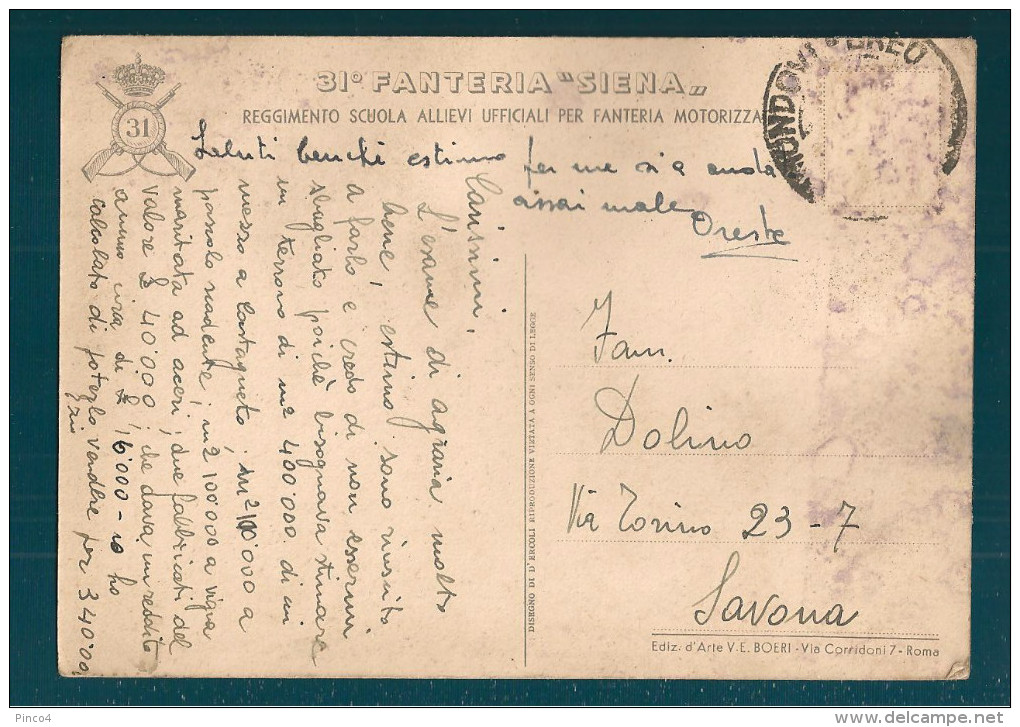 31º FANTERIA "SIENA"
REGGIMENTO SCUOLA ALLIEVI UFFICIALI PER FANTERIA MOTORIZZA
31
MONDOVI
Saluti benchè estimo per me sia andata
assai male
Oreste
Carissimi,
L'esame di agraria molto
bene, estimo sono riuscito
a farlo e credo di non essermi
sbagliato poichè bisognava stimare
un terreno di m2 400'000 di cui
mezzo a castagneto, m2 100'000 a
pascolo nudente, m2 100'000 a vigna
maritata ad aceri, due fabbricati del
valore £ 40'000; che dava un reddito
annuo circa di £ 16'000 - io ho
calcolato di poterlo vendere per 340'00
Fam.
Dolino
Via Torino 23-7
Savona
DISEGNO DI D'ERCOLI RIPRODUZIONE VIETATA A OGNI SENSO DI LEGGE
Ediz. d'Arte V. E. BOERI - Via Corridoni 7 - Roma
Pinco4
delcampe.net